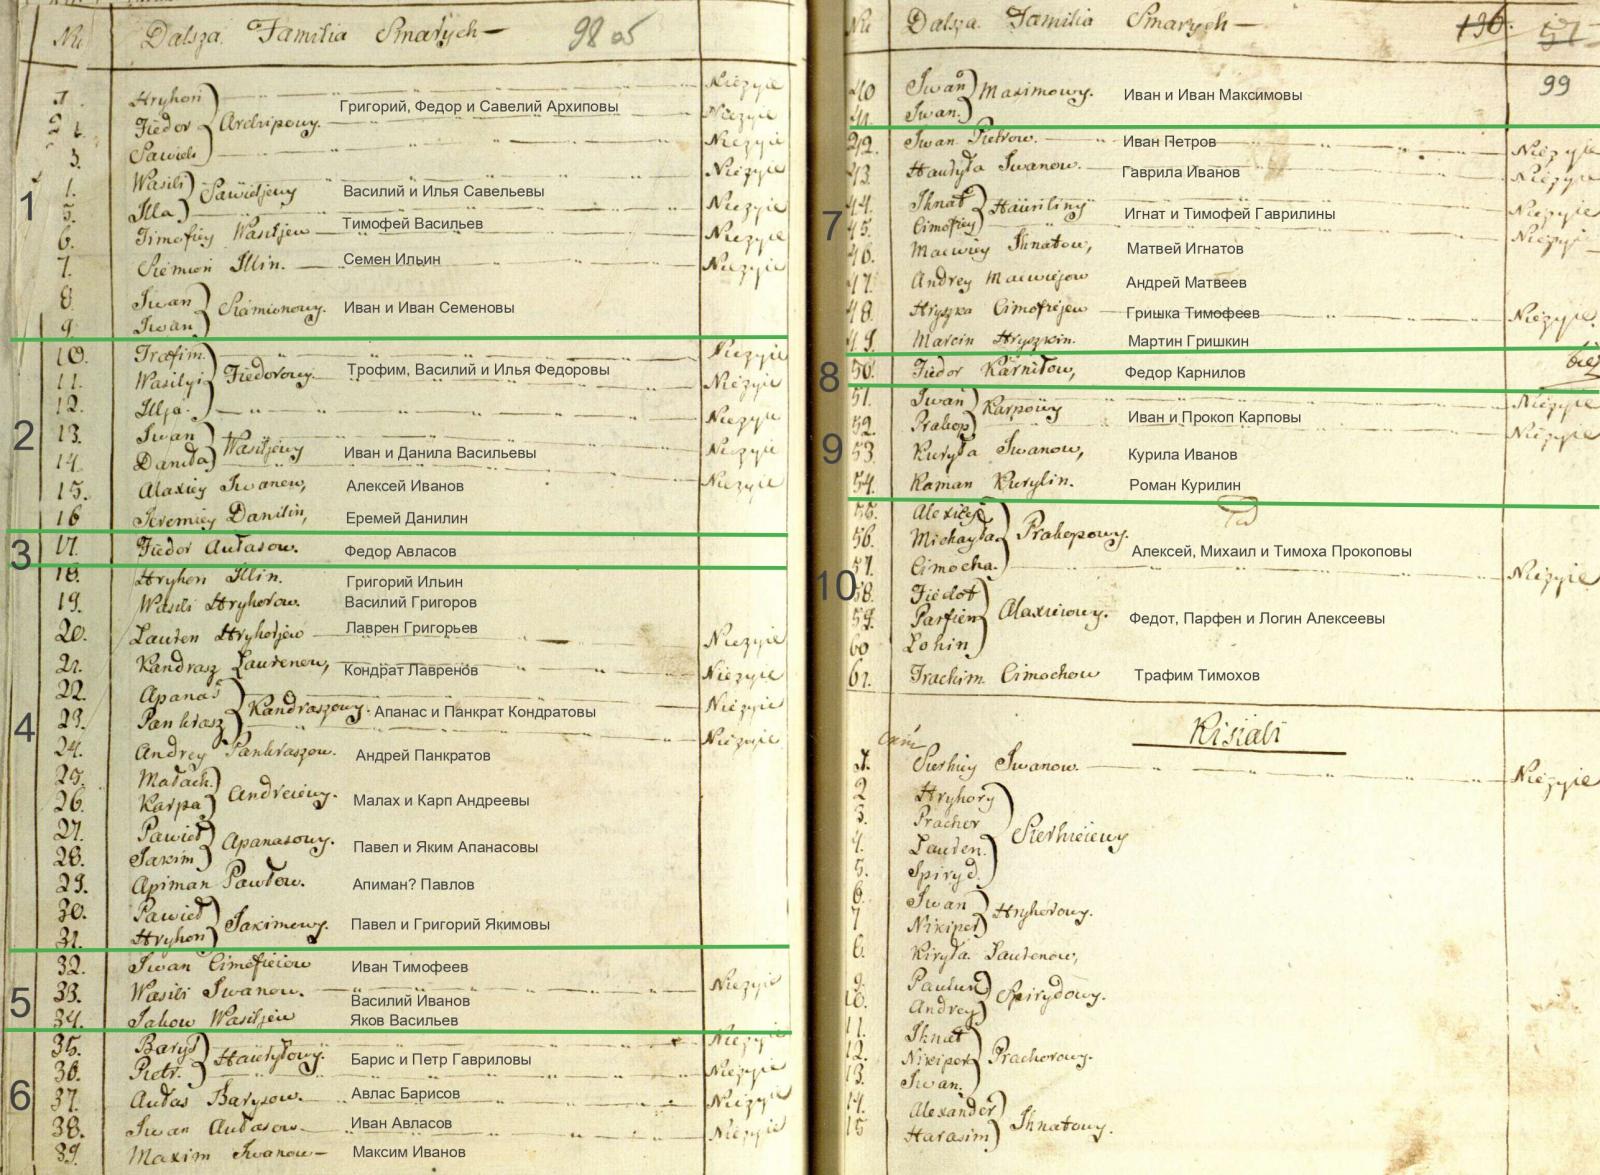 Nu Dalsza Familia Smarych 98
1
1. Hryhori Nieżyie
2. Fiedor Archipowy. Григорий, Федор и Савелий Архиповы Nieżyie
3. Sawieli Nieżyie
Wasili Sawieljewy Василий и Илья Савельевы Nieżyie
5. Illa Nieżyie
6. Timofiey Wasiljew Тимофей Васильев Nieżyie
7. Siemion Illin. Семен Ильин Nieżyie
8. Iwan Siamionowy. Иван и Иван Семеновы
9. Iwan
2
10. Trofim Nieżyie
11. Wasilyi Fiedorowy. Трофим, Василий и Илья Федоровы Nieżyie
12. Illja Nieżyie
13. Iwan Wasiljewy Иван и Данила Васильевы Nieżyie
14. Daniła Nieżyie
15. Alaxiey Iwanow, Алексей Иванов
16 Jeremiey Danilin, Еремей Данилин
3
17. Fiedor Aułasow. Федор Авласов
4
18. Hryhori Illin. Григорий Ильин
19. Wasili Hryhorow. Василий Григоров
20. Lauren Hryhorjew Лаврен Григорьев Nieżyie
21. Kandrasz Laurenow, Кондрат Лавренов Nieżyie
22. Apanas Kandraszowy. Апанас и Панкрат Кондратовы Nieżyie
23. Pankrasz Nieżyie
24. Andrey Pankraszow. Андрей Панкратов
25. Małach. Andreiewy. Малах и Карп Андреевы
26. Karpa
27. Pawieł Apanasowy. Павел и Яким Апанасовы
28. Jakim
29. Apiman Pawłow. Апиман? Павлов
30. Pawieł Jakimowy. Павел и Григорий Якимовы
31. Hryhori
5
32. Iwan Cimofieiow Иван Тимофеев
33. Wasili Iwanow. Василий Иванов Nieżyie
34. Jakow Wasiljew Яков Васильев
6
35. Barys Hauryłowy. Барис и Петр Гавриловы Nieżyie
36. Pietr. Nieżyie
37. Aułas Barysow. Авлас Барисов Nieżyie
38. Iwan Aułasow Иван Авласов Nieżyie
39. Maxim Iwanow Максим Иванов
Nu Dalsza Familia Smarych 136. 57
99
40 Iwan Maximowy. Иван и Иван Максимовы
41. Iwan.
7
42. Iwan Pietrow. Иван Петров Nieżyie
43. Hauryła Iwanow. Гаврила Иванов Nieżyie
44. Ihnat Hauriliny Игнат и Тимофей Гаврилины Nieżyie
45. Cimofiey Nieżyie
46. Maciey Ihnatow, Матвей Игнатов
47. Andrey Maciejow Андрей Матвеев
48. Hryszka Cimofiejew Гришка Тимофеев Nieżyie.
49. Marcin Hryszkin. Мартин Гришкин
8
50. Fiedor Karniłow, Федор Карнилов
9
51. Iwan Karpowy Иван и Прокоп Карповы Nieżyie
52. Prakop Nieżyie
53. Kuryła Iwanow, Курила Иванов
54. Raman Kurylin. Роман Курилин
10
55. Alexiey
56. Michayła Prakopowy. Алексей, Михаил и Тимоха Прокоповы
57. Cimocha. Nieżyie
58. Fiedot
59. Parfien Alaxieiowy. Федот, Парфен и Логин Алексеевы
60 Lohin
61. Trachim Cimochow Трафим Тимохов
Kisiali
1. Sierhiey Iwanow. Nieżyie
2 Hryhory
3. Prachor Sierhieiewy
4. Lauren.
5. Spiryd
6. Iwan Hryhorowy.
7 Nikiper
8. Kiryła Laurenow,
9. Paulu Spirydowy.
10. Andrey
11. Ihnat
12. Nikiper Prachorowy.
13. Iwan.
14. Alexander Ihnatowy.
15 Harasim